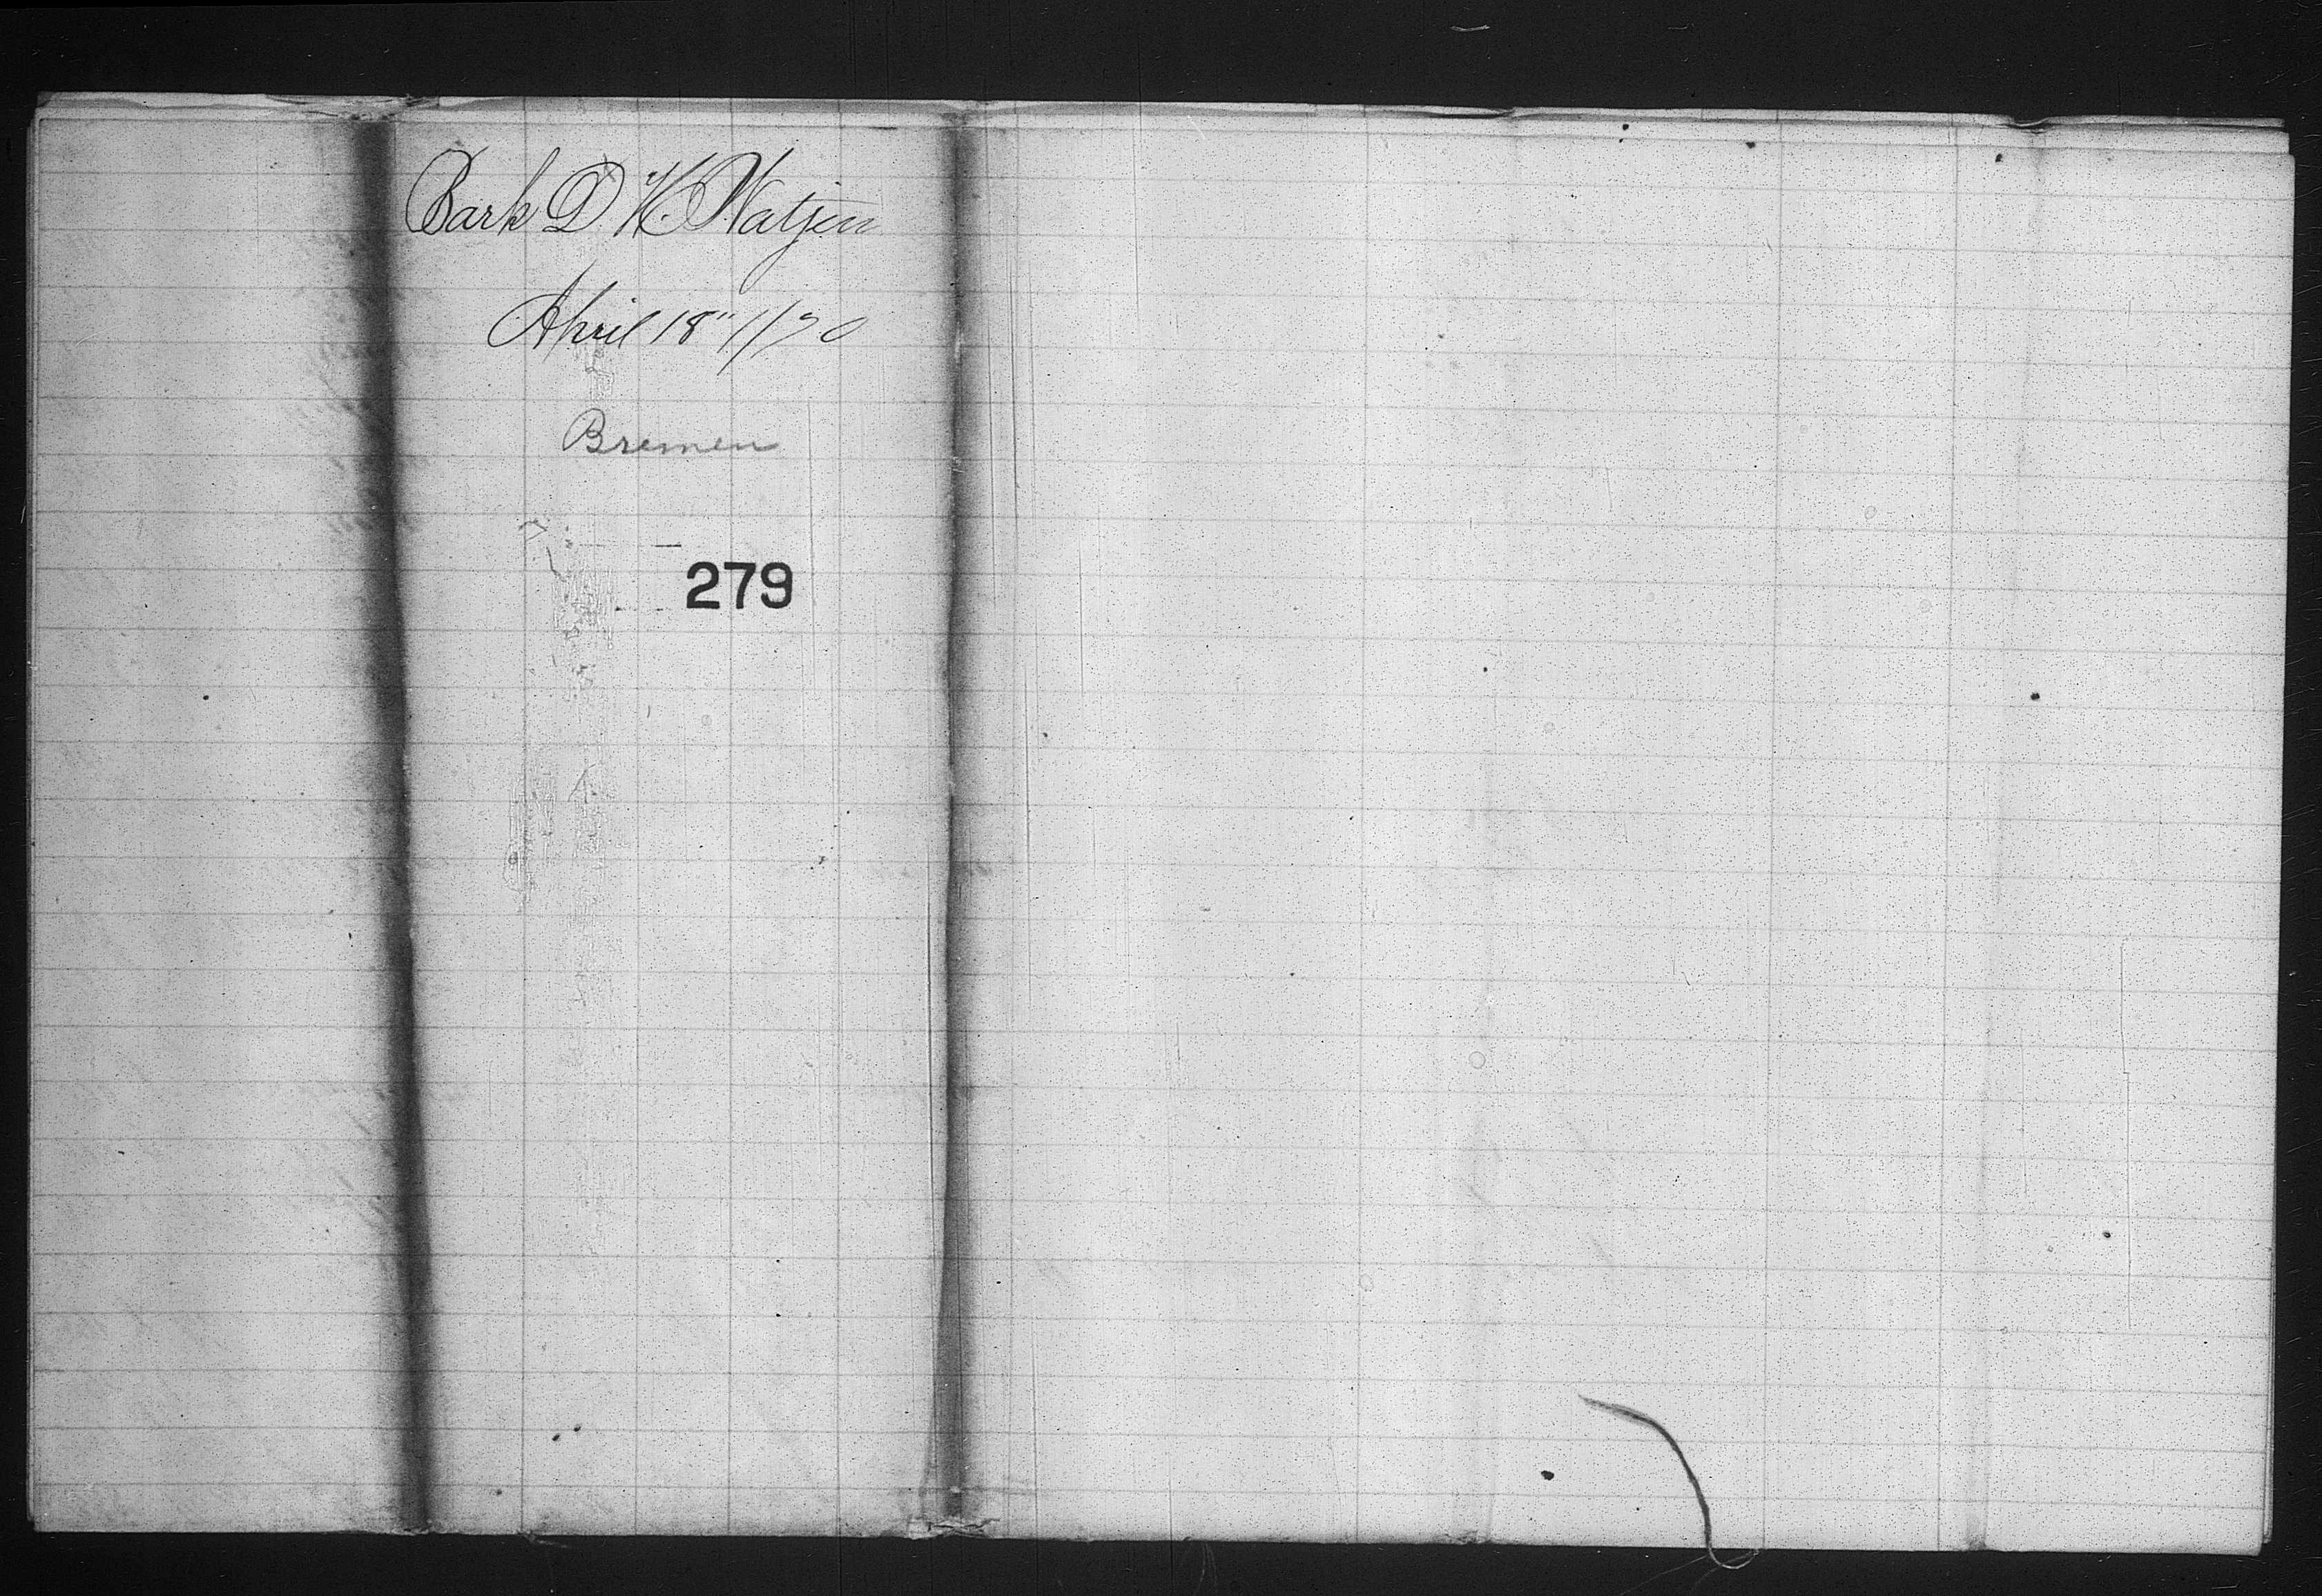 Bark D H. Watjen
April 18"//70
Bremen
279